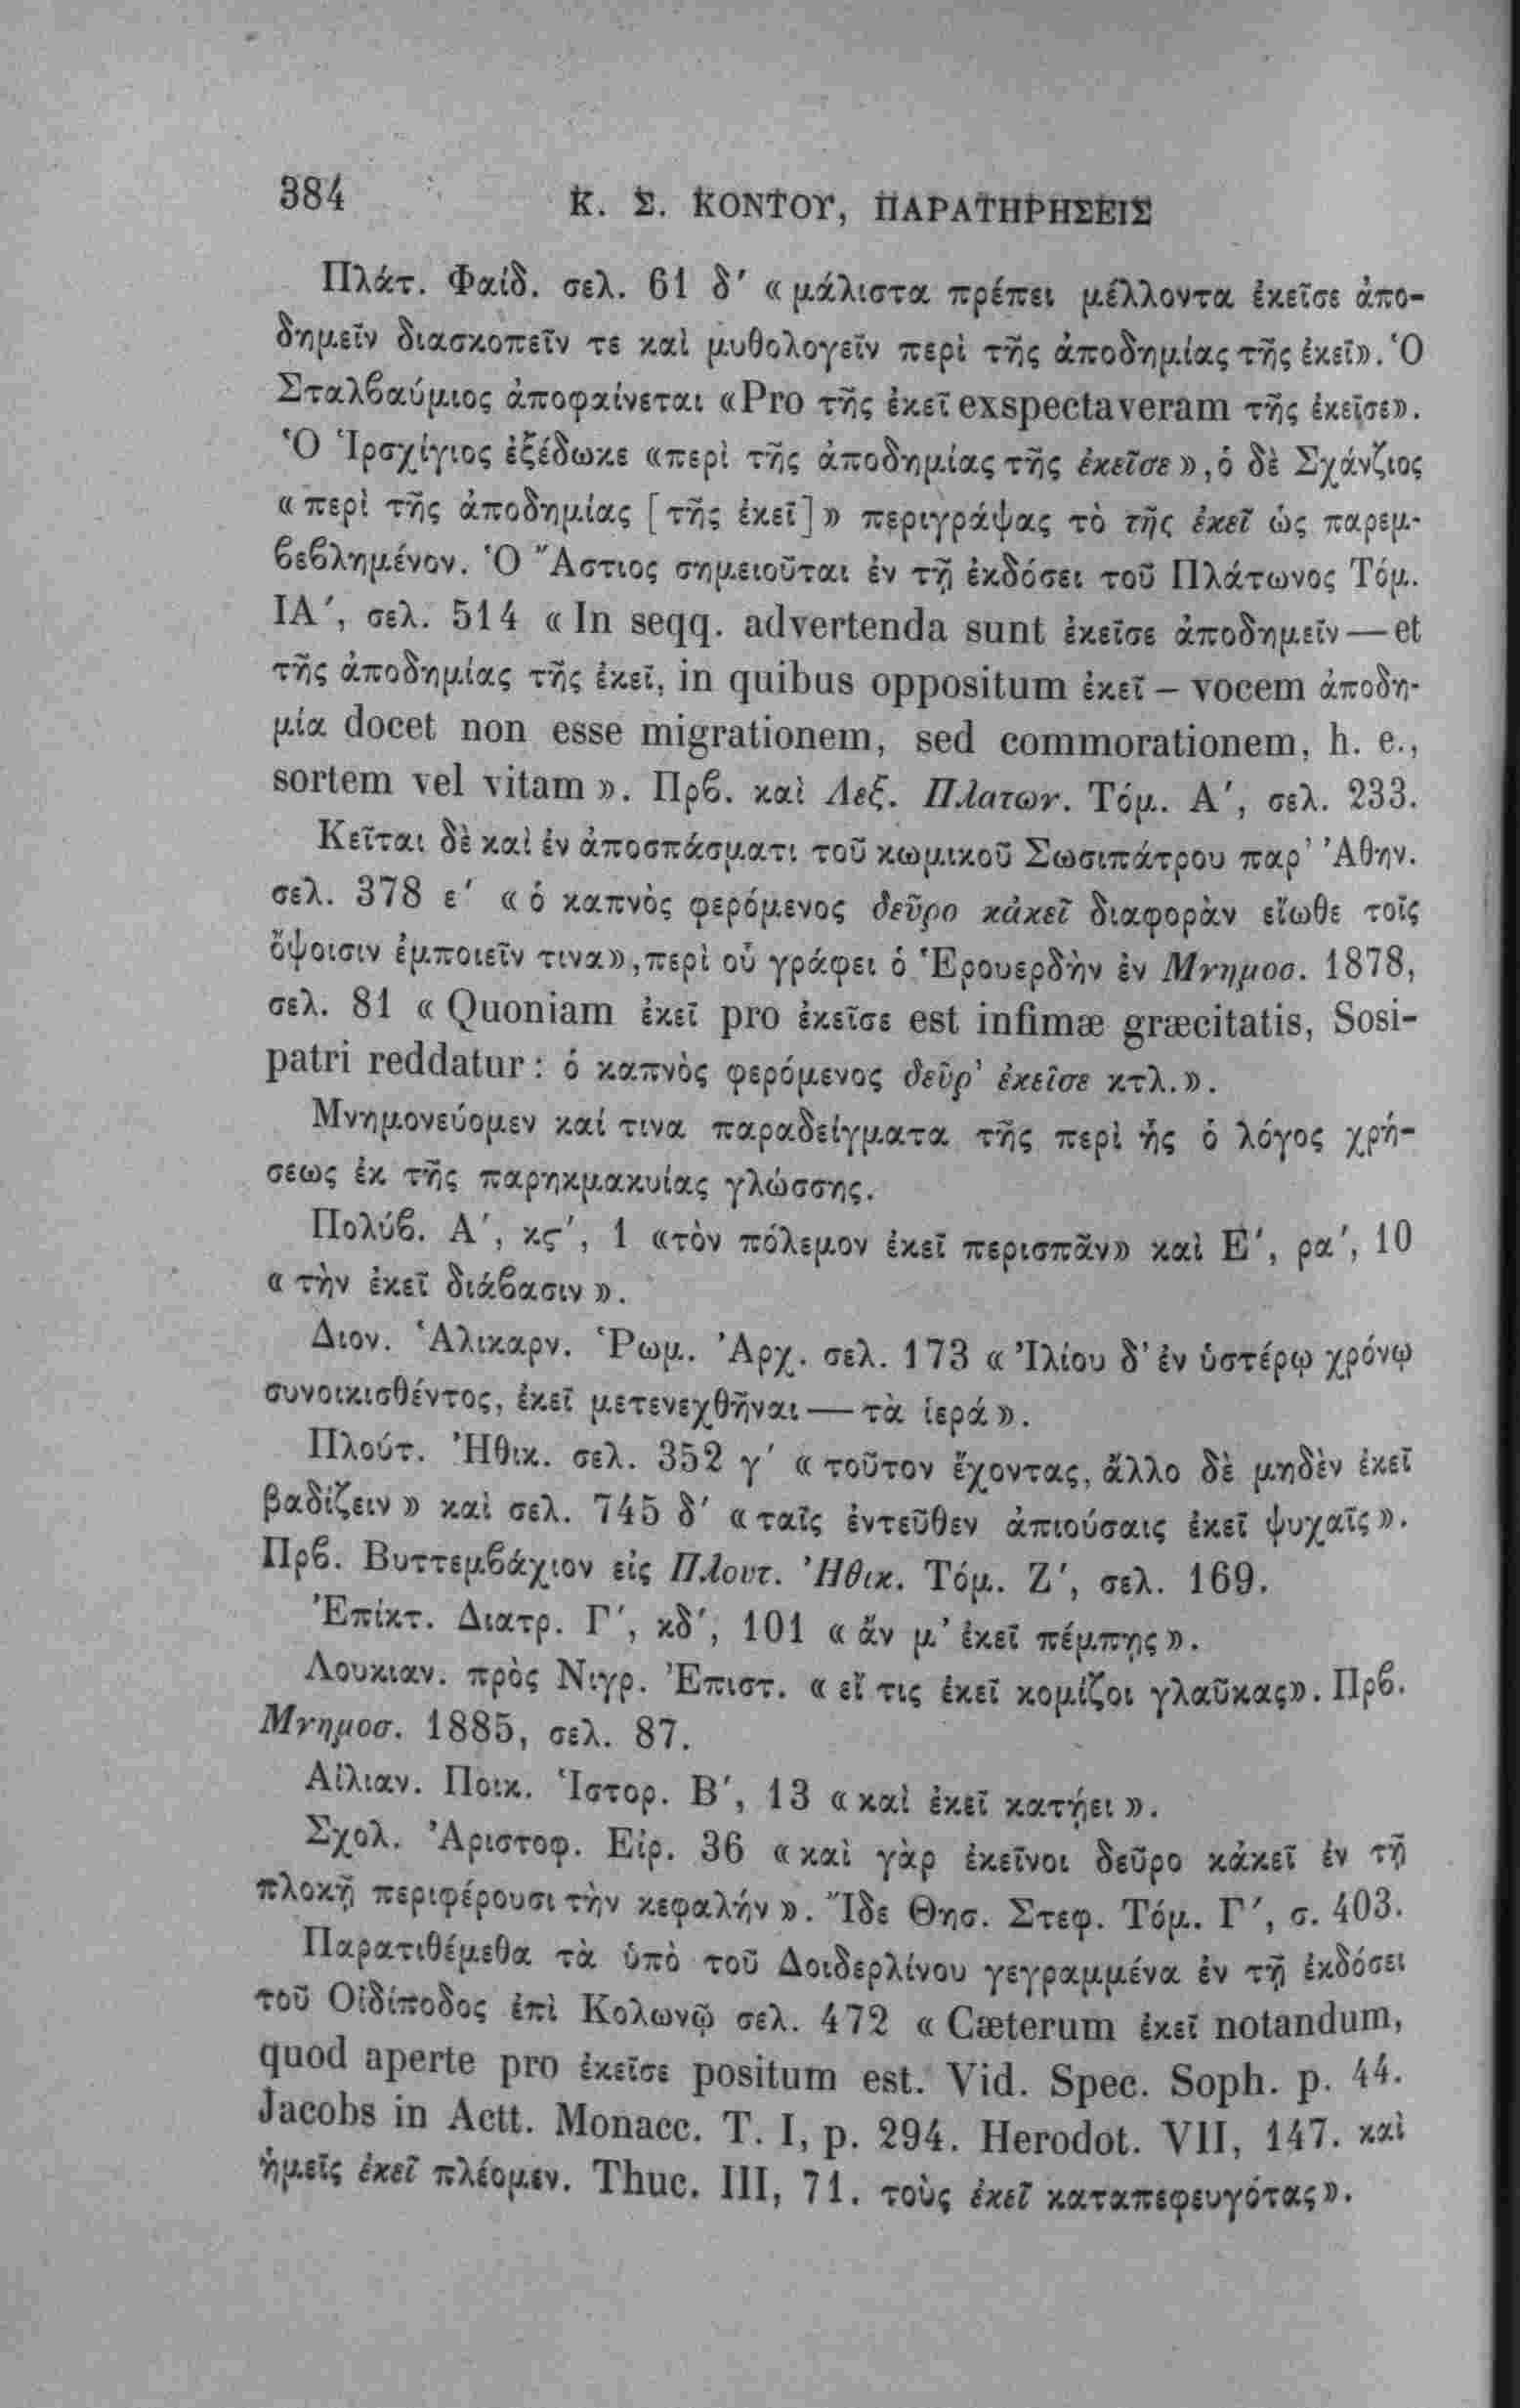 384 Κ. Σ. ΚΟΝΤΟΥ, ΠΑΡΑΤΗΡΗΣΕΙΣ
Πλάτ. Φαίδ. σελ. 61 δ′ «μάλιστα πρέπει μέλλοντα ἐκεῖσε ἀπο-
δημεῖν διασκοπεῖν τε καὶ μυθολογεῖν περὶ τῆς ἀποδημίας τῆς ἐκεῖ». Ὁ
Σταλβαύμιος ἀποφαίνεται «Pro τῆς ἐκεῖ exspectaveram τῆς ἐκεῖσε».
Ὁ Ἱρσχίγιος ἐξέδωκε «περὶ τῆς ἀποδημίας τῆς ἐκεῖσε», ὁ δὲ Σχάνζιος
«περὶ τῆς ἀποδημίας [τῆς ἐκεῖ]» περιγράψας τὸ τῆς ἐκεῖ ὡς παρεμ-
βεβλημένον. Ὁ Ἄστιος σημειοῦται ἐν τῇ ἐκδόσει τοῦ Πλάτωνος Τόμ.
ΙΑ′, σελ. 514 «In seqq. advertenda sunt ἐκεῖσε ἀποδημεῖν — et
τῆς ἀποδημίας τῆς ἐκεῖ, in quibus oppositum ἐκεῖ – vocem ἀποδη-
μία docet non esse migrationem, sed commorationem, h. e.,
sortem vel vitam». Πρβ. καὶ Λεξ. Πλατων. Τόμ. Α′, σελ. 233.
Κεῖται δὲ καὶ ἐν ἀποσπάσματι τοῦ κωμικοῦ Σωσιπάτρου παρ' Ἀθην.
σελ. 378 ε′ «ὁ καπνὸς φερόμενος δεῦρο κἀκεῖ διαφορὰν εἴωθε τοῖς
ὄψοισιν ἐμποιεῖν τινα», περὶ οὗ γράφει ὁ Ἑρουερδὴν ἐν Μνημοσ. 1878,
σελ. 81 «Quoniam ἐκεῖ pro ἐκεῖσε est infimæ græcitatis, Sosi-
patri reddatur: ὁ καπνὸς φερόμενος δεῦρ' ἐκεῖσε κτλ.».
Μνημονεύομεν καί τινα παραδείγματα τῆς περὶ ἧς ὁ λόγος χρή-
σεως ἐκ τῆς παρηκμακυίας γλώσσης.
Πολύβ. Α′, κς′, 1 «τὸν πόλεμον ἐκεῖ περισπᾶν» καὶ Ε′, ρα′, 10
«τὴν ἐκεῖ διάβασιν».
Διον. Ἁλικαρν. Ῥωμ. Ἀρχ. σελ. 173 «Ἰλίου δ' ἐν ὑστέρῳ χρόνῳ
συνοικισθέντος, ἐκεῖ μετενεχθῆναι — τὰ ἱερά».
Πλούτ. Ἠθικ. σελ. 352 γ′ «τοῦτον ἔχοντας, ἄλλο δὲ μηδὲν ἐκεῖ
βαδίζειν» καὶ σελ. 745 δ′ «ταῖς ἐντεῦθεν ἀπιούσαις ἐκεῖ ψυχαῖς».
Πρβ. Βυττεμβάχιον εἰς Πλουτ. Ἠθικ. Τόμ. Ζ′, σελ. 169.
Ἐπίκτ. Διατρ. Γ′, κδ′, 101 «ἄν μ' ἐκεῖ πέμπῃς».
Λουκιαν. πρὸς Νιγρ. Ἐπιστ. «εἴ τις ἐκεῖ κομίζοι γλαῦκας». Πρβ.
Μνημοσ. 1885, σελ. 87.
Αἰλιαν. Ποικ. Ἱστορ. Β′, 13 «καὶ ἐκεῖ κατῄει».
Σχολ. Ἀριστοφ. Εἰρ. 36 «καὶ γὰρ ἐκεῖνοι δεῦρο κἀκεῖ ἐν τῇ
πλοκῇ περιφέρουσι τὴν κεφαλήν». Ἴδε Θησ. Στεφ. Τόμ. Γ′, σ. 403.
Παρατιθέμεθα τὰ ὑπὸ τοῦ Δοιδερλίνου γεγραμμένα ἐν τῇ ἐκδόσει
τοῦ Οἰδίποδος ἐπὶ Κολωνῷ σελ. 472 «Cæterum ἐκεῖ notandum,
quod aperte pro ἐκεῖσε positum est. Vid. Spec. Soph. p. 44.
Jacobs in Actt. Monacc. T. I, p. 294. Herodot. VII, 147. καὶ
ἡμεῖς ἐκεῖ πλέομεν. Thuc. III, 71. τοὺς ἐκεῖ καταπεφευγότας».